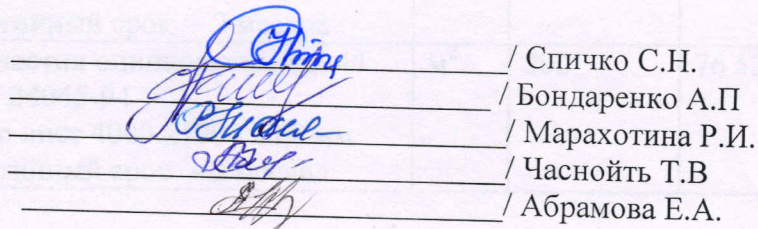 / Спичко С.Н.
/ Бондаренко А.П
/ Марахотина Р.И.
/ Часнойть Т.В
/ Абрамова Е.А.